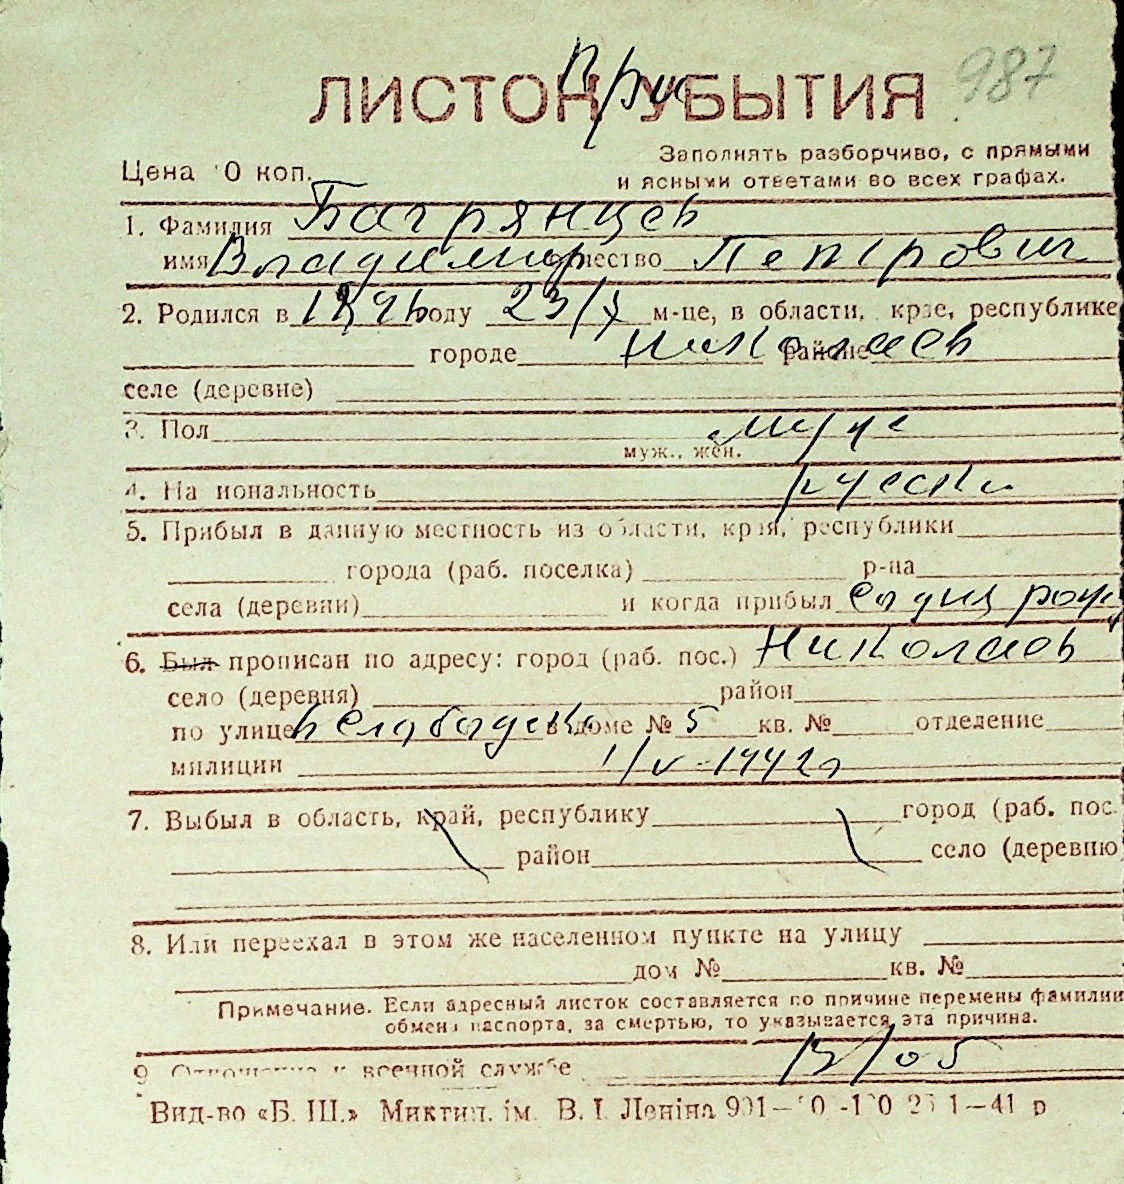 987
При
ЛИСТОК УБЫТИЯ
Заполнять разборчиво, с прямыми
Цена 0 коп. и ясными ответами во всех графах.
1. Фамилия Багрянцев
имя Владимир отчество Петрович
2. Родился в году 23/X м-це, в области, крае, республике
городе Николаев районе
селе (деревне)
3. Пол муж
муж., жен.
4. Национальность русски
5. Прибыл в данную местность из области, края, республики
города (раб. поселка) р-на
села (деревни) и когда прибыл
6. Был прописан по адресу: город (раб. пос.) Николаев
село (деревня) район
по улице в доме № 5 кв. № отделение
милиции 1/V-1942г
7. Выбыл в область, край, республику город (раб. пос.
район село (деревню
8. Или переехал в этом же населенном пункте на улицу
дом № кв. №
Примечание. Если адресный листок составляется по причине перемены фамилии
обмена паспорта, за смертью, то указывается эта причина.
9. Отношение к военной службе В/об
Вид-во «Б. Ш.» Миктип. ім. В. І. Леніна